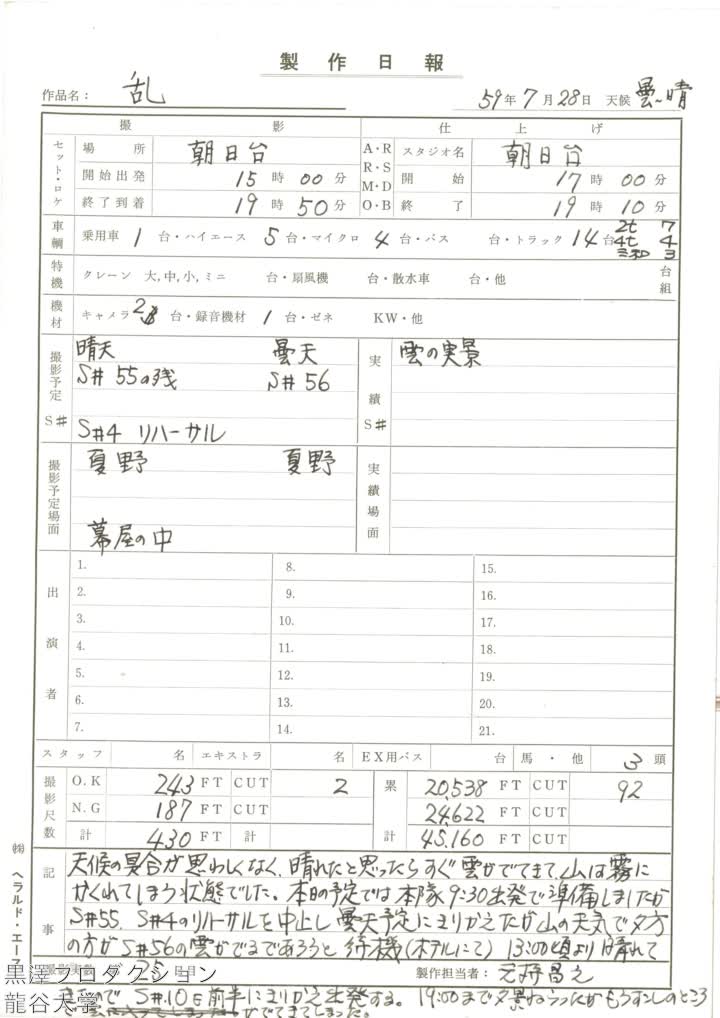 製作日報
作品名： 乱 59年7月28日 天候 曇〜晴
撮影 仕上げ
セット・ロケ 場所 朝日台 A・R R・S M・D O・B スタジオ名 朝日台
開始出発 15時00分 開始 17時00分
終了到着 19時50分 終了 19時10分
車輌 乗用車 1台・ハイエース 5台・マイクロ 4台・バス 台・トラック 14台 2t 7 4t 4 3
特機 クレーン 大,中,小,ミニ 台・扇風機 台・散水車 台・他 台組
機材 キャメラ 2台・録音機材 1台・ゼネ KW・他
撮影予定 S# 晴天 曇天 実績 S# 雲の実景
S# 55の残 S# 56
S#4 リハーサル
撮影予定場面 夏野 夏野 実績場面
幕屋の中
出演者 1. 8. 15.
2. 9. 16.
3. 10. 17.
4. 11. 18.
5. 12. 19.
6. 13. 20.
7. 14. 21.
スタッフ 名 エキストラ 名 EX用バス 台 馬・他 3頭
撮影尺数 O.K 243 FT CUT 2 累計 20,538 FT CUT 92
N.G 187 FT CUT 24,622 FT CUT
計 430 FT 計 45,160 FT 計
記事 天候の具合が思わしくなく、晴れたと思ったらすぐ雲がでてきて、山は霧に
かくれてしまう状態でした。本日の予定では本隊9:30出発で準備しましたが
S#55、S#4のリハーサルを中止し曇天予定にきりかえたが山の天気で夕方
の方がS#56の雲がでるであろうと待機(ホテルにて) 13:00頃より晴れて
撮影実数 25日目 製作担当者：
きたので、S#10を前半にきりかえ出発する。19:00まで夕景ねらったがもうすこしのところ
がでてきてしまった。
㈱ヘラルド・エース
黒澤プロダクション
龍谷大学